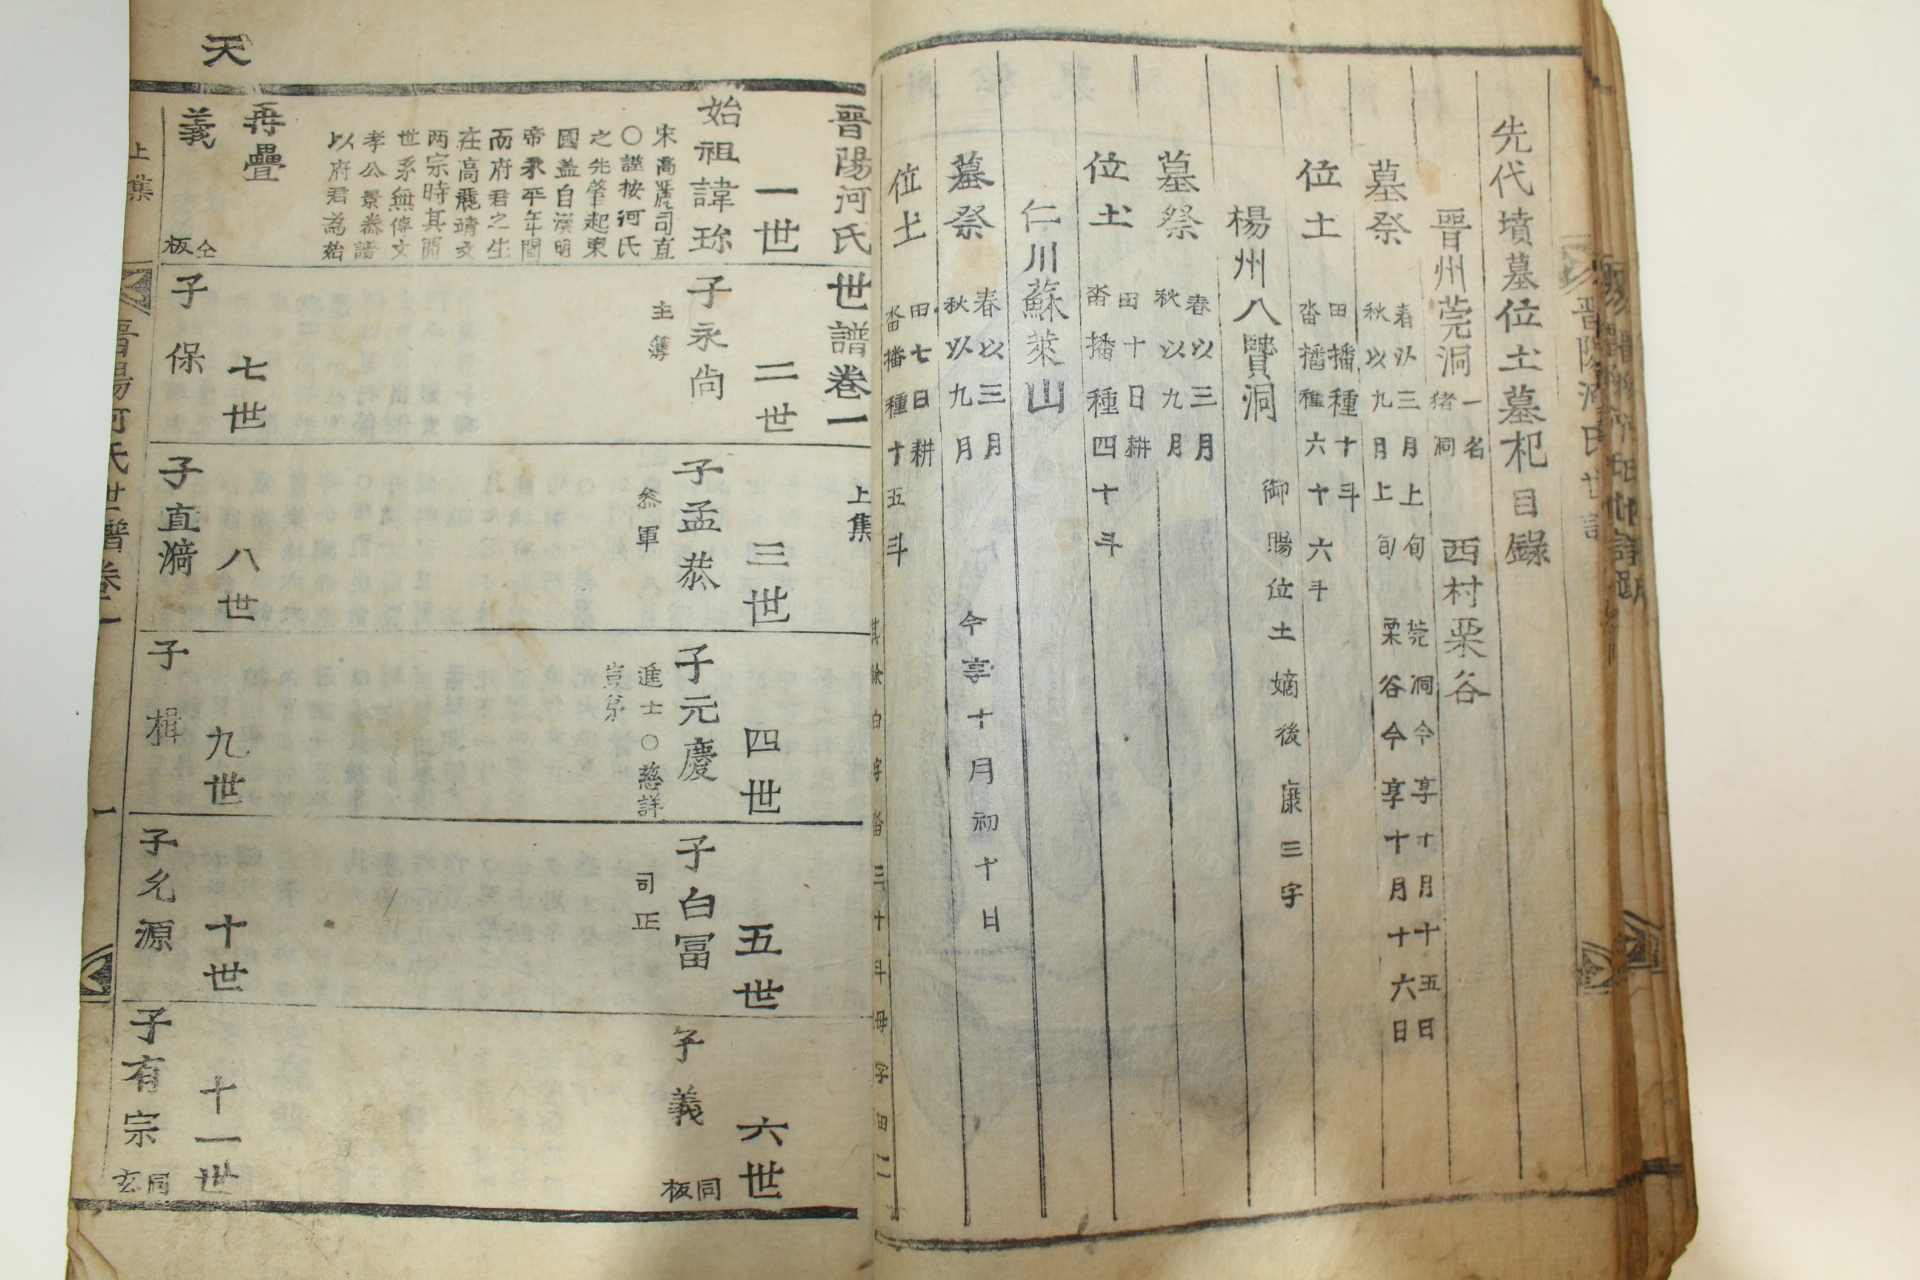 先代墳墓位土墓祀目錄
晋州莞洞一名猪洞 西村栗谷
墓祭春以三月上旬秋以九月上旬 莞洞今享十月十五日栗谷今享十月十六日
位土田播種十斗畓播種六十六斗
楊州八賢洞 御賜位土嫡後廉三字
墓祭春以三月秋以九月
位土田十日耕畓播種四十斗
仁川蘇萊山
墓祭春以三月秋以九月 今享十月初十日
位土田七日耕畓播種十五斗
晋陽河氏世譜卷一 上集
一世
始祖諱珎
宋高麗司直
○謹按河氏
之先肇起東
國盖自漢明
帝永平年間
而府君之生
在高麗靖文
两宗時其間
世系無傳文
孝公景叅譜
以府君爲始
二世
子永尙
主簿
三世
子孟恭
叅軍
四世
子元慶
進士○慈詳
豈弟
五世
子白冨
司正
六世
子義
同板
天
再疊
義
仝板
七世
子保
八世
子直漪
九世
子楫
十世
子允源
十一世
子有宗
同玄
上集
晋陽河氏世譜卷一
一